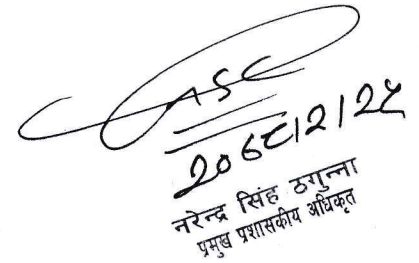 २०६८।२।२५
नरेन्द्र सिंह ठगुन्ना
प्रमुख प्रशासकीय अधिकृत